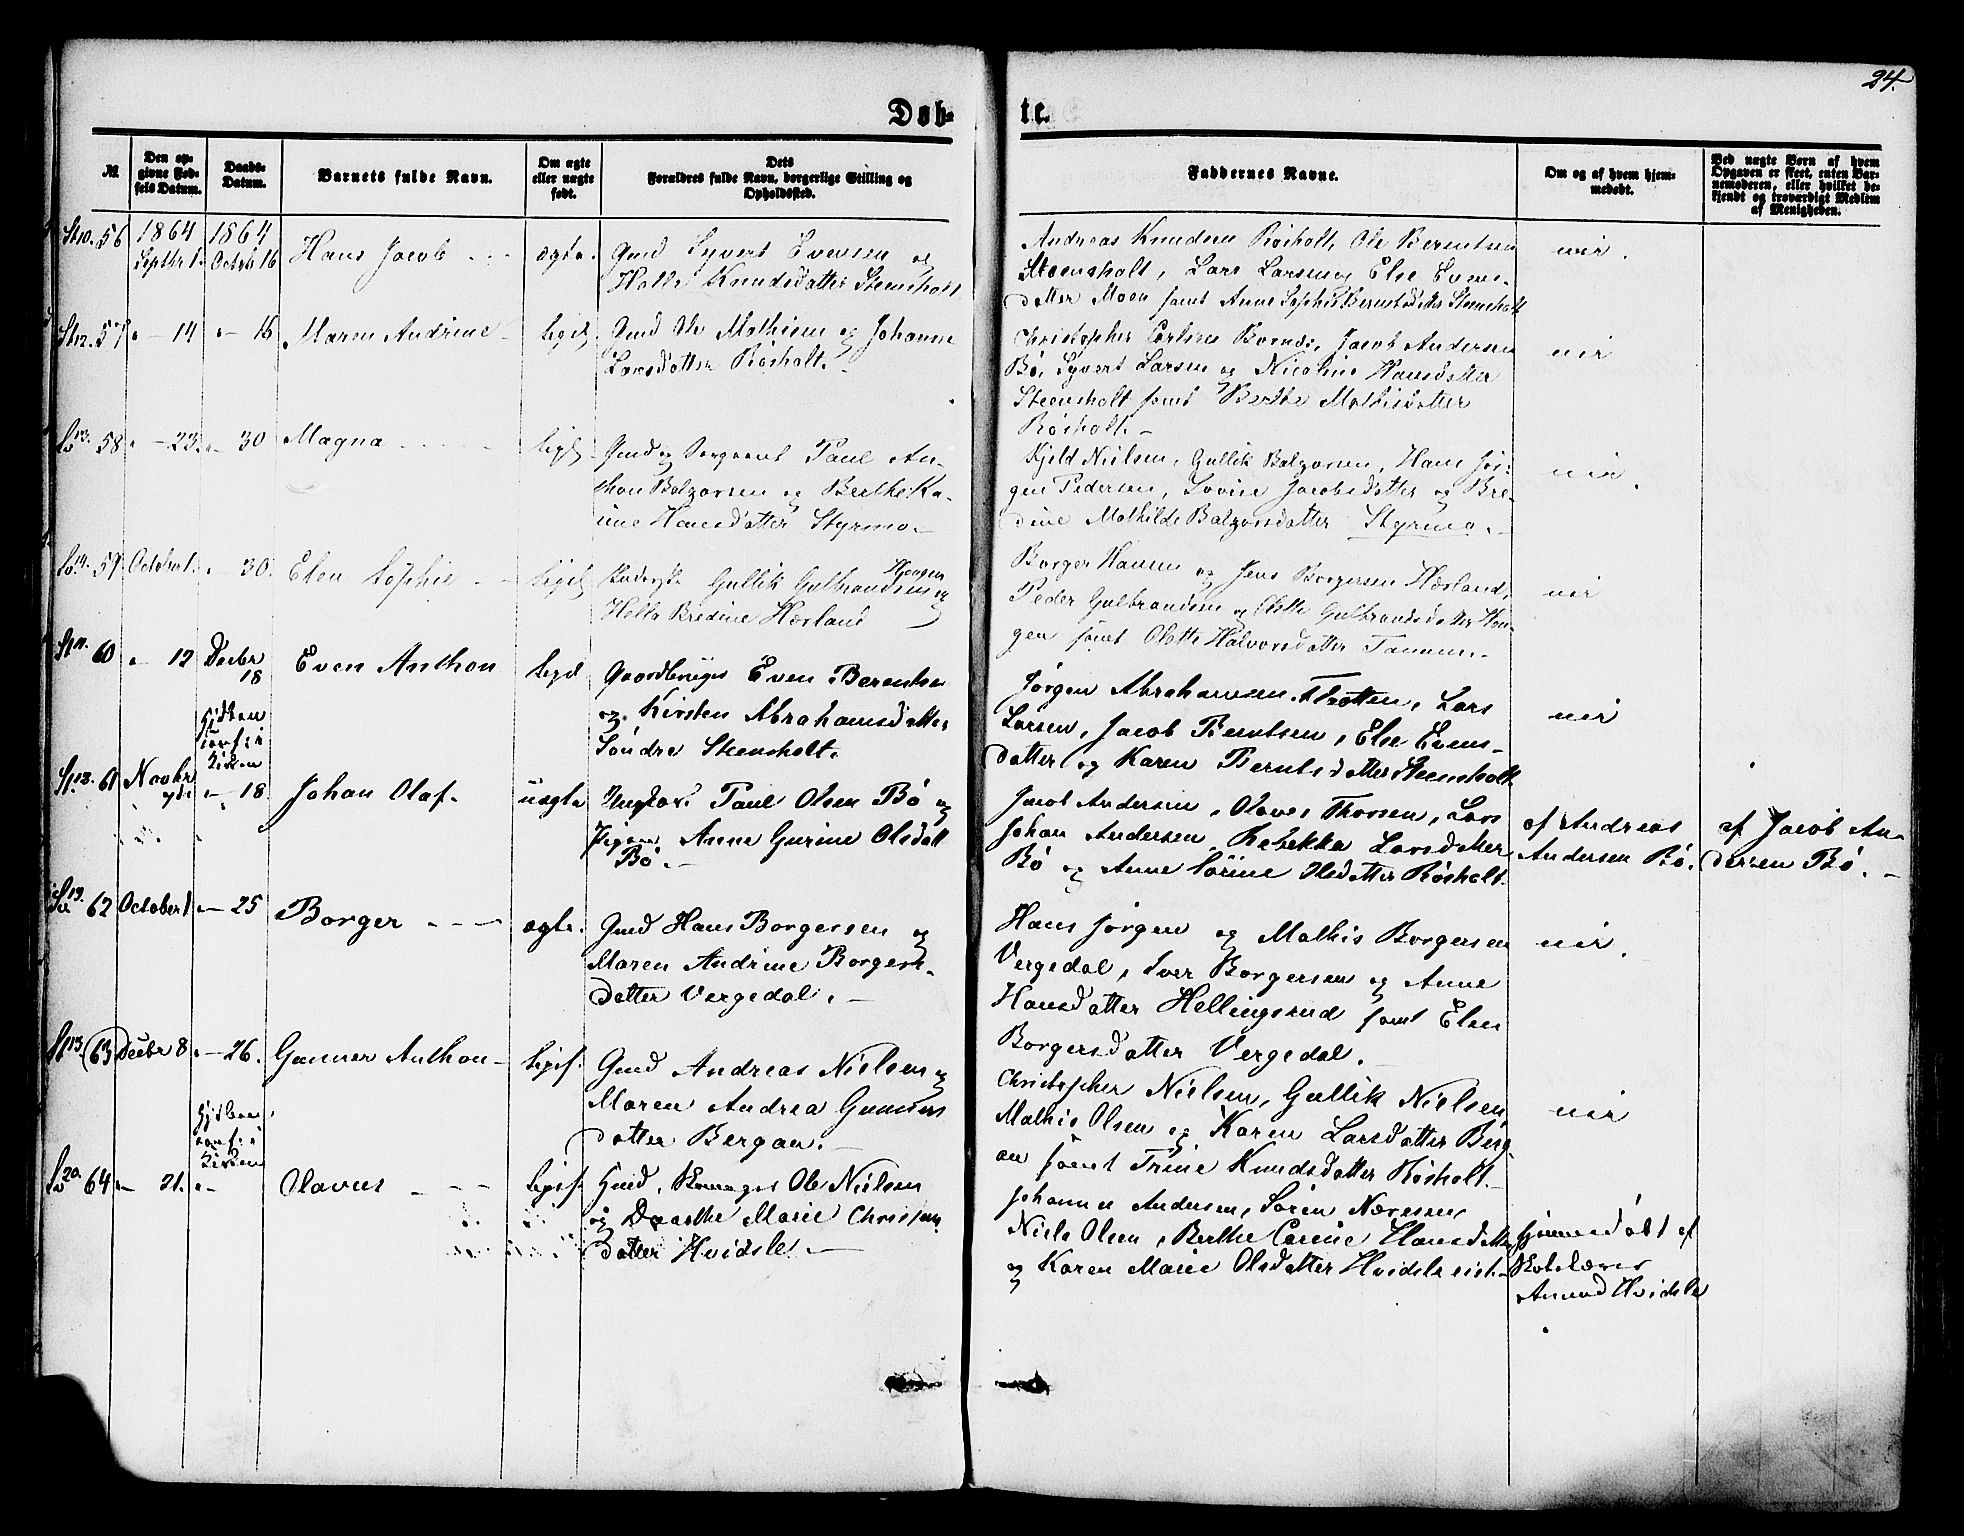 24.
Døb-
te.
№
Den op-
givne Fød-
sels Datum.
Daabs-
Datum.
Barnets fulde Navn.
Om ægte
eller uægte
født.
Dets
Forældres fulde Navn, borgerlige Stilling og
Opholdssted.
Faddernes Navne.
Om og af hvem hjem-
medøbt.
Ved uægte Børn af hvem
Opgaven er skeet, enten Bar-
nemoderen, eller hvilket be-
kjendt og troværdigt Medlem
af Menigheden.
56
1864
Septbr 1.
1864
Octob 16
Hans Jacob
ægte.
Gmd Syvert Evensen og
Helle Knudsdatter Steensholt
Andreas Knudsen Røsholt, Ole Berentsen
Steensholt, Lars Larsen og Else Evens-
datter Moen samt Anne Sophie Berntsdatter Steensholt
nei.
57 " - 14 " - 16
Maren Andrine
ligel.
Gmd Ole Mathisen og Johanne
Larsdatter Røsholt.
Christopher Carlsen, Jacob Andersen
Bø, Syvert Larsen og Nicoline Hansdatter
Steensholt samt Berthe Mathisdatter
Røsholt.
nei
58 " - 23. " - 30
Magna
ligel
Gmd og Sergeant Paul An-
thon Balzersen og Berthe Ka-
rine Hansdatter Styrmo.
Kjeld Nielsen, Gullik Balzersen, Hans Jør-
gen Pedersen, Lovise Jacobsdatter og Bre-
dine Mathilde Balzersdatter Styrmo.
nei.
59 October 1. " - 30.
Elen Sophie
ligel
Gullik Gulbrandsen Hougen og
Helle Bredine Hærland
Borger Hansen og Jens Borgersen Hærland,
Peder Gulbrandsen og Olette Gulbrandsdatter Hou-
gen samt Olette Halvorsdatter Tammen.
nei
60 " 12
Decbr
18
Even Anthon
ligel
Gaardbruger Even Berentsen
og Kirsten Abrahamsdatter
Søndre Steensholt.
Jørgen Abrahamsen Flaatten, Lars
Larsen, Jacob Berntsen, Else Evens-
datter og Karen Berntsdatter Steensholt
nei
hidtom
conf. i
Kirken
61
Novbr
" - 18
Johan Olaf.
uægte
Ungkar. Paul Olsen Bø og
Pigen Anne Gurine Olsdatt
Bø.
Jacob Andersen, Olaves Thorsen, Lars
Johan Andersen, Rebekka Larsdatter
Bø og Anne Sørine Olsdatter Røsholt.
af Andreas
Andersen Bø.
af Jacob An-
dersen Bø.
62 October 1 " - 25
Borger
ægte.
Gmd Hans Borgersen og
Maren Andrine Borgers-
datter Vergedal.
Hans Jørgen og Mathis Borgersen
Vergedal, Iver Borgersen og Anne
Hansdatter Hellingsrud samt Elen
Borgersdatter Vergedal.
nei.
63 Decbr 8 " - 26.
Gunner Anthon
ligel.
Gmd Andreas Nielsen og
Maren Andrea Gunners
datter Bergan.
Christopher Nielsen, Gullik Nielsen
Mathis Olsen og Karen Larsdatter Berg-
an samt Trine Knudsdatter Røsholt.
nei
conf. i
Kirken
64 " - 21. " -
Olavus
ligel.
Gmd. Ole Nielsen
og Dorthe Marie Christens
datter Hvidsle.
Johannes Andersen, Søren Næresen,
Niels Olsen, Berthe Carine Hansdatter
og Karen Marie Olsdatter Hvidsle
hjemmedøbt af
Skolelærer
Amund Hvidsle